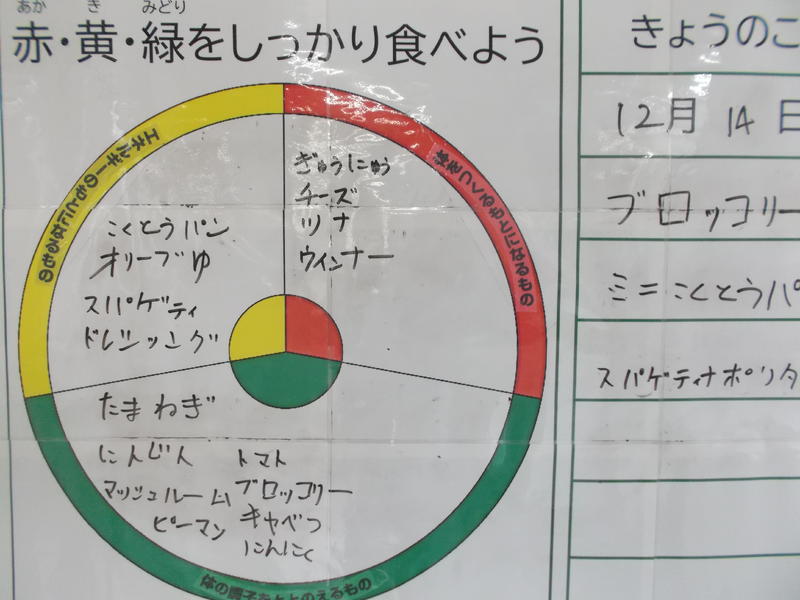 あか き みどり
赤・黄・緑をしっかり食べよう
エネルギーのもとになるもの
体をつくるもとになるもの
ぎゅうにゅう
チーズ
ツナ
ウインナー
こくとうパン
オリーブゆ
スパゲティ
ドレシッング
たまねぎ
にんじん
マッシュルーム
ピーマン
トマト
ブロッコリー
キャベつ
にんにく
体の調子をととのえるもの
きょうのこ
12月 14 日
ブロッコリー
ミニこくとうパ
スパゲティナポリタ